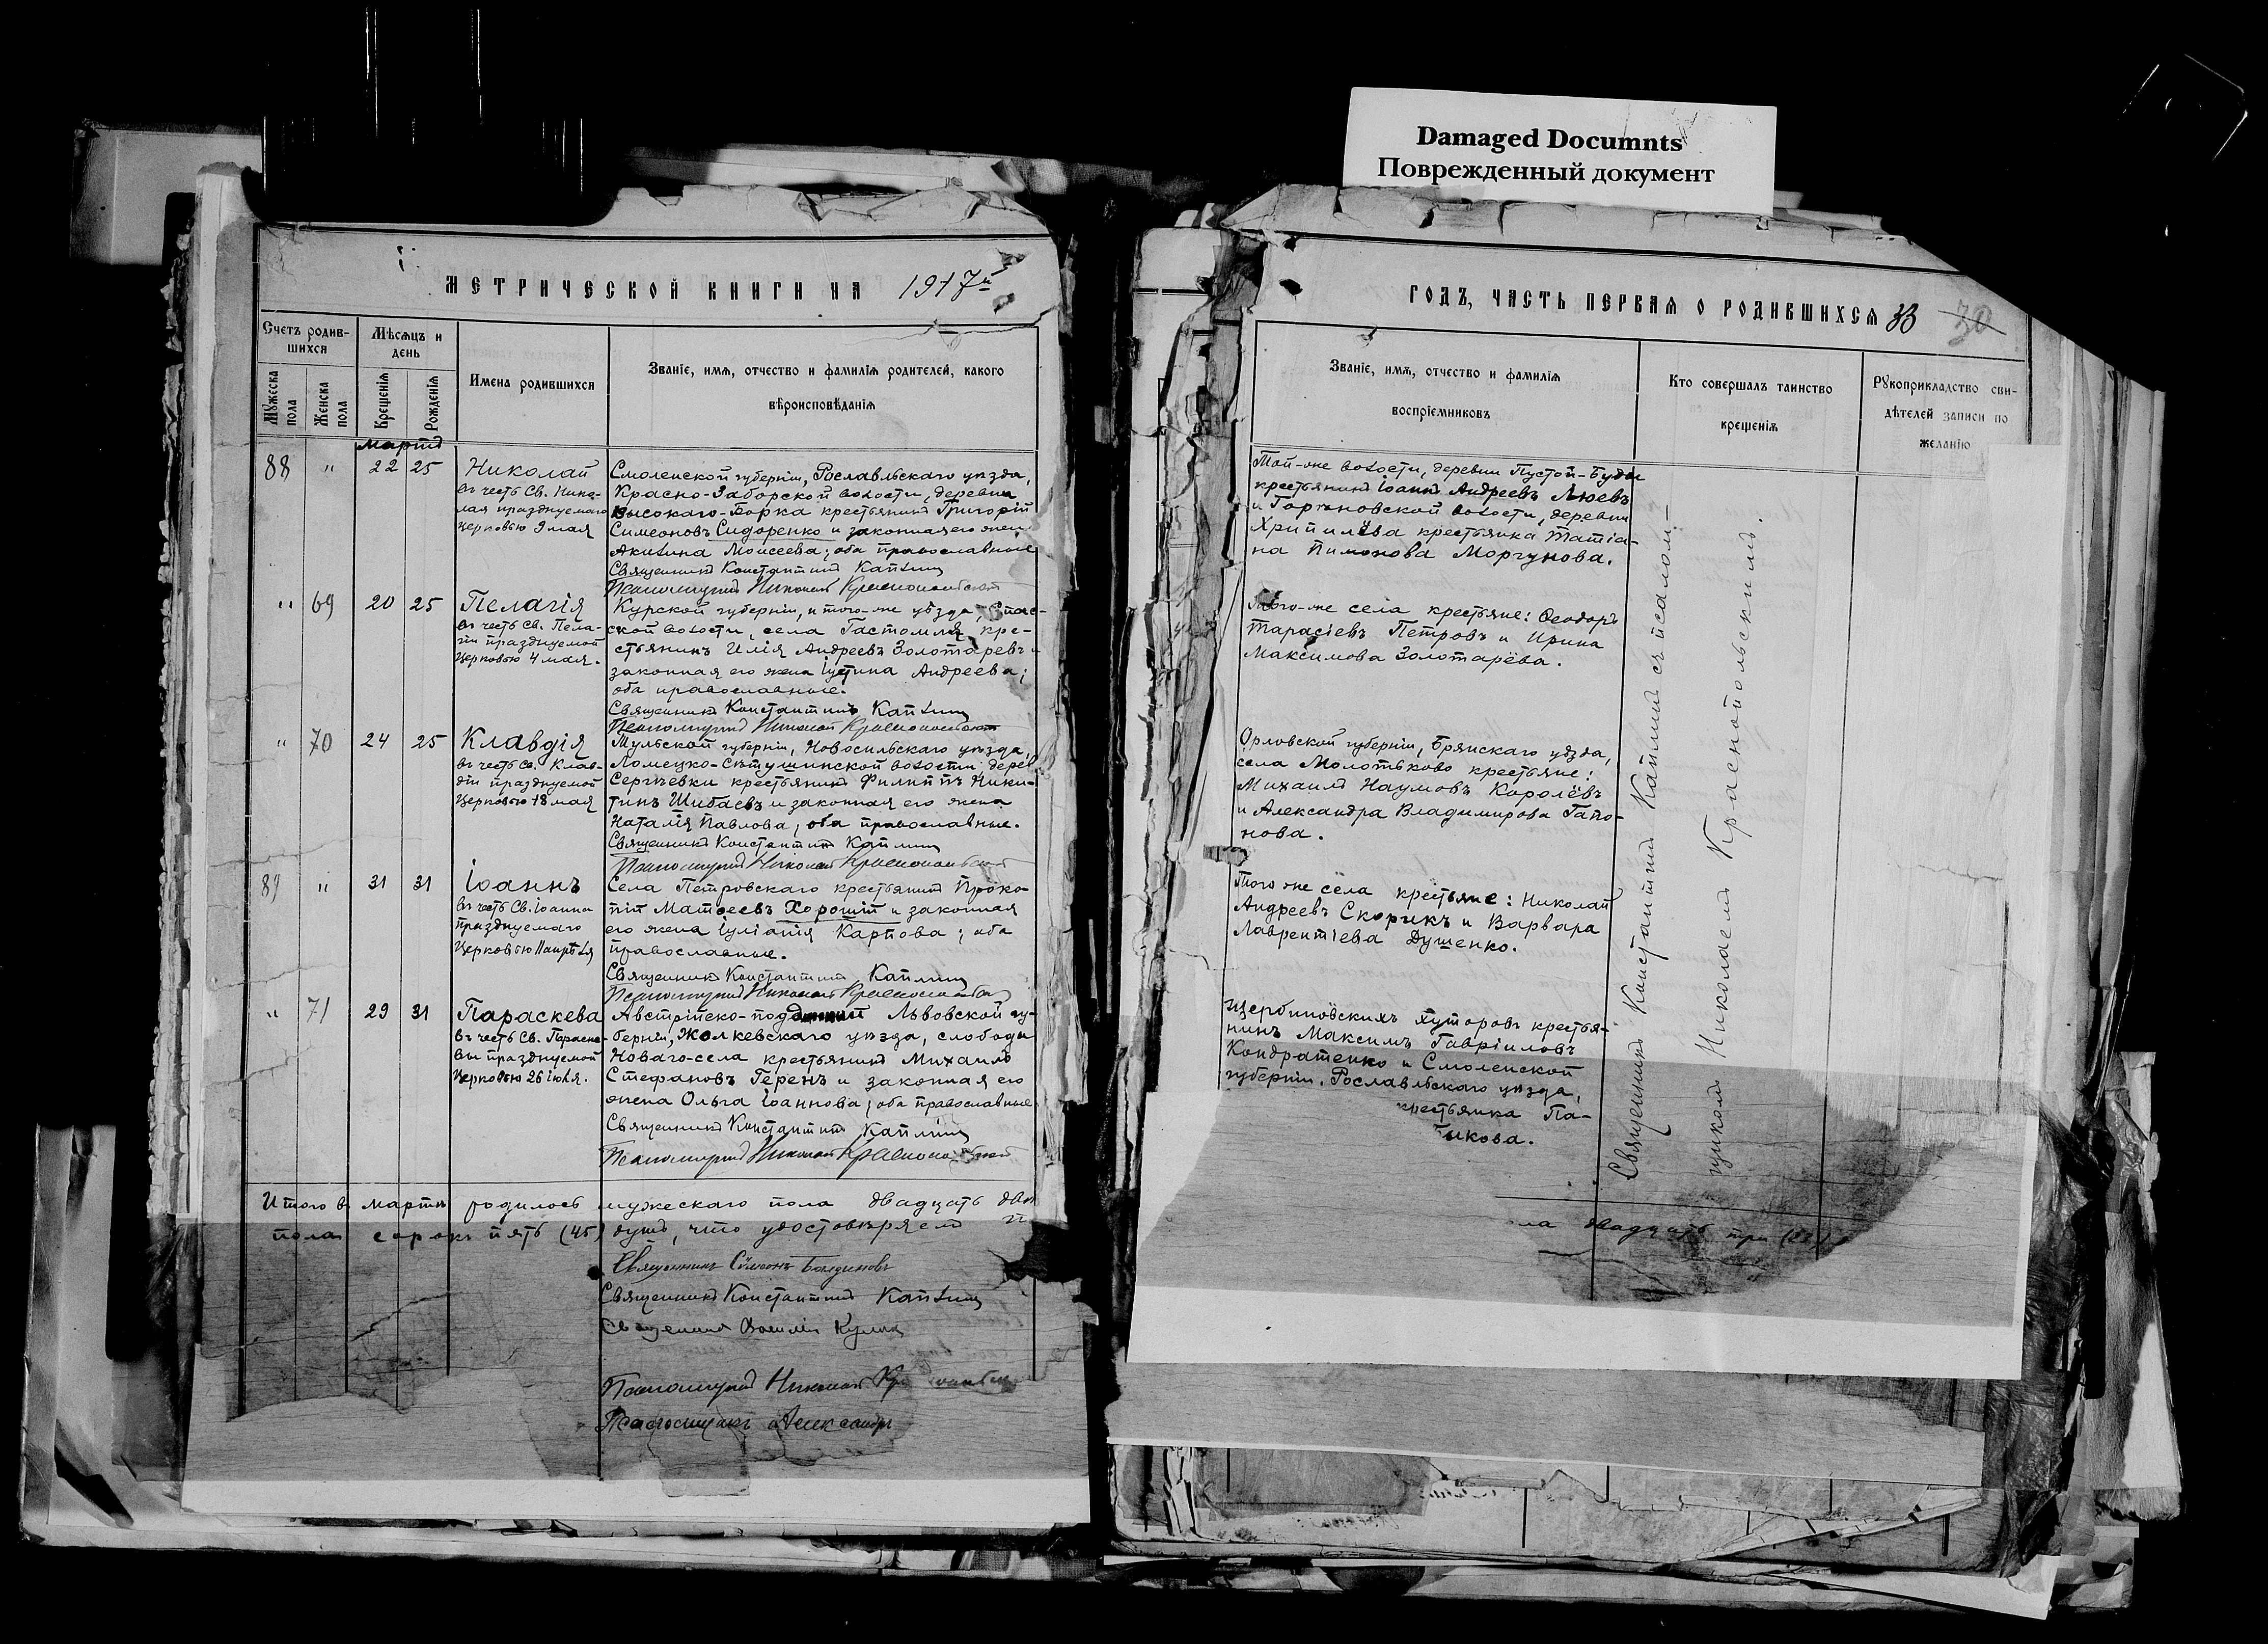 Damaged Documnts
Поврежденный документ
МЕТРИЧЕСКОЙ КНИГИ НА 1917й
Счетъ родив-
шихся
Мѣсяцъ и
день
Мужеска пола
Женска пола
Крещенія
Рожденія
Имена родившихся
Званіе, имя, отчество и фамилія родителей, какого
вѣроисповѣданія
Марта
88 " 22 25
Николай
въ честь Св. Нико-
лая празднуемаго
церковью 9 мая
Смоленской губерніи, Рославльскаго уѣзда,
Красно-Заборской волости, деревни
Высокаго-Борка крестьянинъ Григорій
Симеоновъ Сидоренко и законная его жена
Акилина Моисеева; оба православные
Священникъ Константинъ Каплинъ
Псаломщикъ Николай Краснопольскій
" 69 20 25
Пелагія
въ честь Св. Пела-
гіи празднуемой
церковью 4 мая.
Курской губерніи, и того-же уѣзда, Спас-
ской волости, села Гастомля, кре-
стьянинъ Илія Андреевъ Золотаревъ и
законная его жена Іустина Андреева;
оба православные.
Священникъ Константинъ Каплинъ
Псаломщикъ Николай Краснопольскій
" 70 24 25
Клавдія
въ честь Св. Клав-
діи празднуемой
церковью 18 мая
Тульской губерніи, Новосильскаго уѣзда,
Ломецко-Сѣтушинской волости дерев
Сергѣевки крестьянинъ Филиппъ Ники-
тинъ Шибаевъ и законная его жена
Наталія Павлова, оба православные.
Священникъ Константинъ Каплинъ
Псаломщикъ Николай Краснопольскій
89 " 31 31
Іоаннъ
въ честь Св. Іоанна
празднуемаго
церковью 11 апрѣля
Села Петровскаго крестьянинъ Проко-
пій Матѳеевъ Хорошій и законная
его жена Іуліанія Карпова; оба
православные.
Священникъ Константинъ Каплинъ
Псаломщикъ Николай Краснопольскій
" 71 29 31
Параскева
въ честь Св. Параске-
вы празднуемой
церковью 26 іюля.
Австрійско-подданный Львовской гу-
берніи, Жолкевскаго уѣзда, слободы
Новаго-села крестьянинъ Михаилъ
Стефановъ Геренъ и законная его
жена Ольга Іоаннова; оба православные
Священникъ Константинъ Каплинъ
Псаломщикъ Николай Краснопольскій
Итого въ мартѣ родилось мужескаго пола двадцать два
пола сорокъ пять (45) душъ, что удостовѣряемъ
Священникъ Симеонъ
Священникъ Константинъ Каплинъ
Священникъ Василій
Псаломщикъ Николай
Псаломщикъ Александръ
ГОДЪ, ЧАСТЬ ПЕРВАЯ О РОДИВШИХСЯ 33 30
Званіе, имя, отчество и фамилія
воспріемниковъ
Кто совершалъ таинство
крещенія
Рукоприкладство сви-
дѣтелей записи по
желанію
Той-же волости, деревни Пустой-Буды
крестьянинъ Іоаннъ Андреевъ Люевъ
и Горяновской волости, деревни
Хрипилёва крестьянка Татіа-
на Пимонова Моргунова.
Того-же села крестьяне: Ѳеодоръ
Тарасіевъ Петровъ и Ирина
Максимова Золотарёва.
Орловской губерніи, Брянскаго уѣзда,
села Молотьково крестьяне:
Михаилъ Наумовъ Королёвъ
и Александра Владимирова Гапо-
нова.
Того же села крестьяне: Николай
Андреевъ Скорикъ и Варвара
Лаврентіева Душенко.
Щербиновскихъ хуторовъ крестья-
нинъ Максимъ Гавріиловъ
Кондратенко и Смоленской
губерніи, Рославльскаго уѣзда,
крестьянка Па-
икова.
Священникъ Константинъ Каплинъ съ псалом-
щикомъ Николаемъ Краснопольскимъ.
ла двадцать три (23)